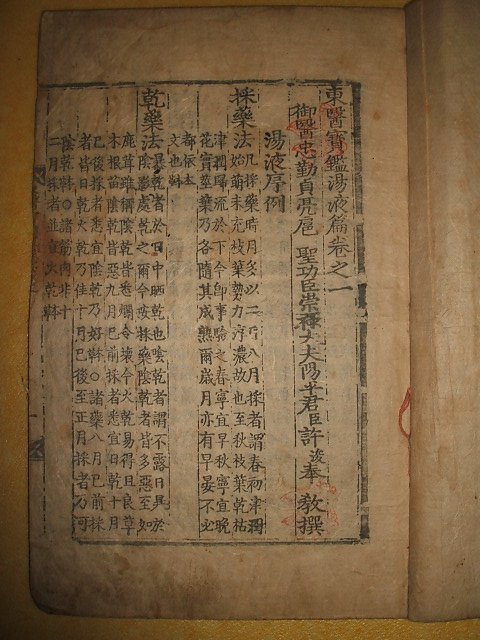 東醫寶鑑湯液篇卷之一
御醫忠勤貞亮扈 聖功臣崇祿大夫陽平君臣許浚奉 敎撰
湯液序例
採藥法凡採藥時月多以二月八月採者謂春初津潤
始萌未充枝葉勢力淳濃故也至秋枝葉乾枯
津潤歸流於下今即事驗之春寧宜早秋寧宜晩
花實莖葉乃各隨其成熟爾歲月亦有早晏不必
都依本
文也
乾藥法暴乾者於日中晒乾也陰乾者謂不露日暴於
陰影處乾之爾今按採藥陰乾者皆多惡至如
鹿茸雖稱陰乾皆悉爛令壞今火乾易得且良草
木根苗陰乾皆惡九月已前採者悉宜日乾十月
已後採者悉宜陰乾乃好○諸藥八月已前採
者皆日乾火乾乃佳十月已後至正月採者乃可
陰乾○諸筋肉非十
二月採者並宜火乾